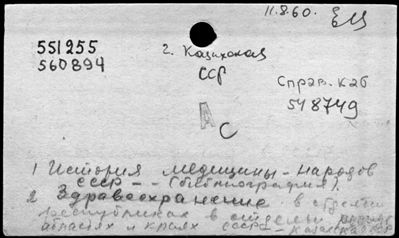 11.8.60.
551255
560894
2. Казахская
ССР
Справ. каб
548749
А С
1 История медицины - народов
СССР - - (библиография).
2 Здравоохранение в
республиках в
областях и краях СССР -